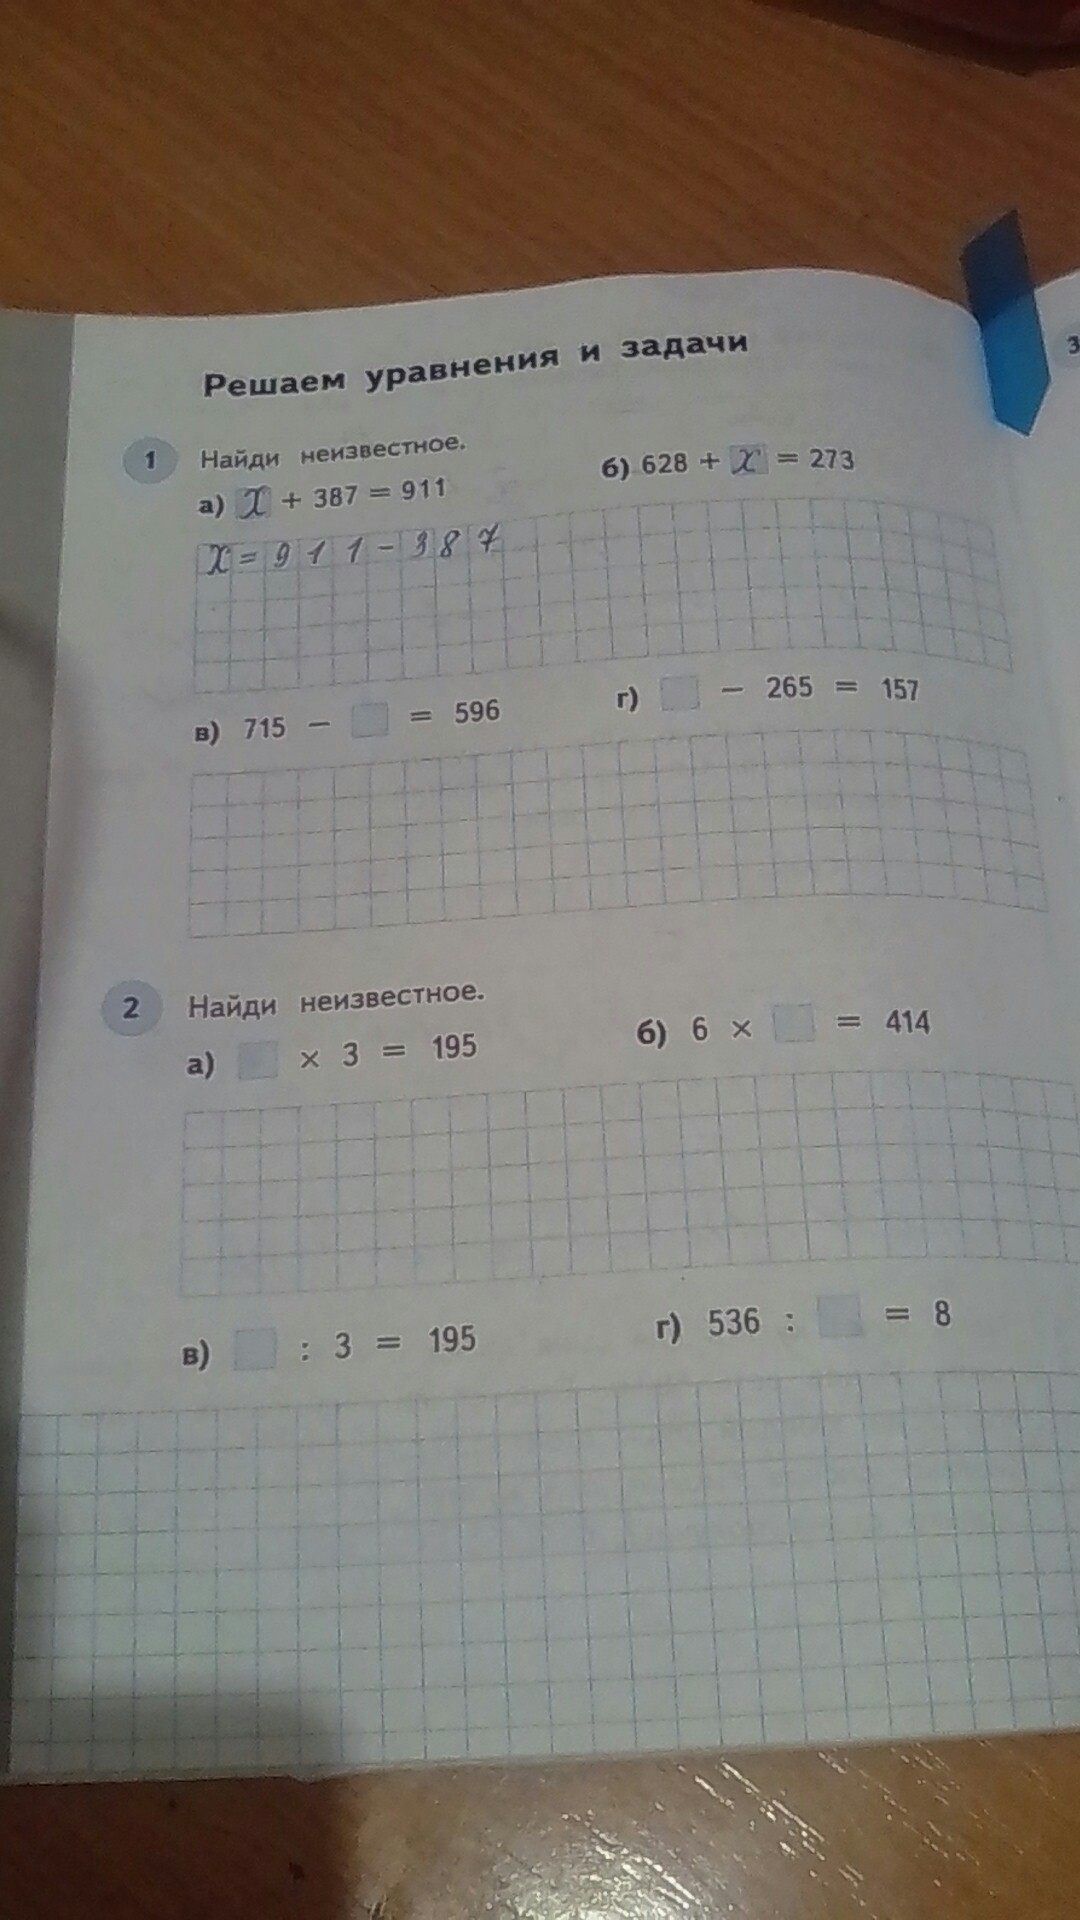 Решаем уравнения и задачи
3
1 Найди неизвестное.
а) x + 387 = 911 б) 628 + x = 273
x = 911 - 387
в) 715 − = 596 г) − 265 = 157
2 Найди неизвестное.
а) × 3 = 195 б) 6 × = 414
в) : 3 = 195 г) 536 : = 8